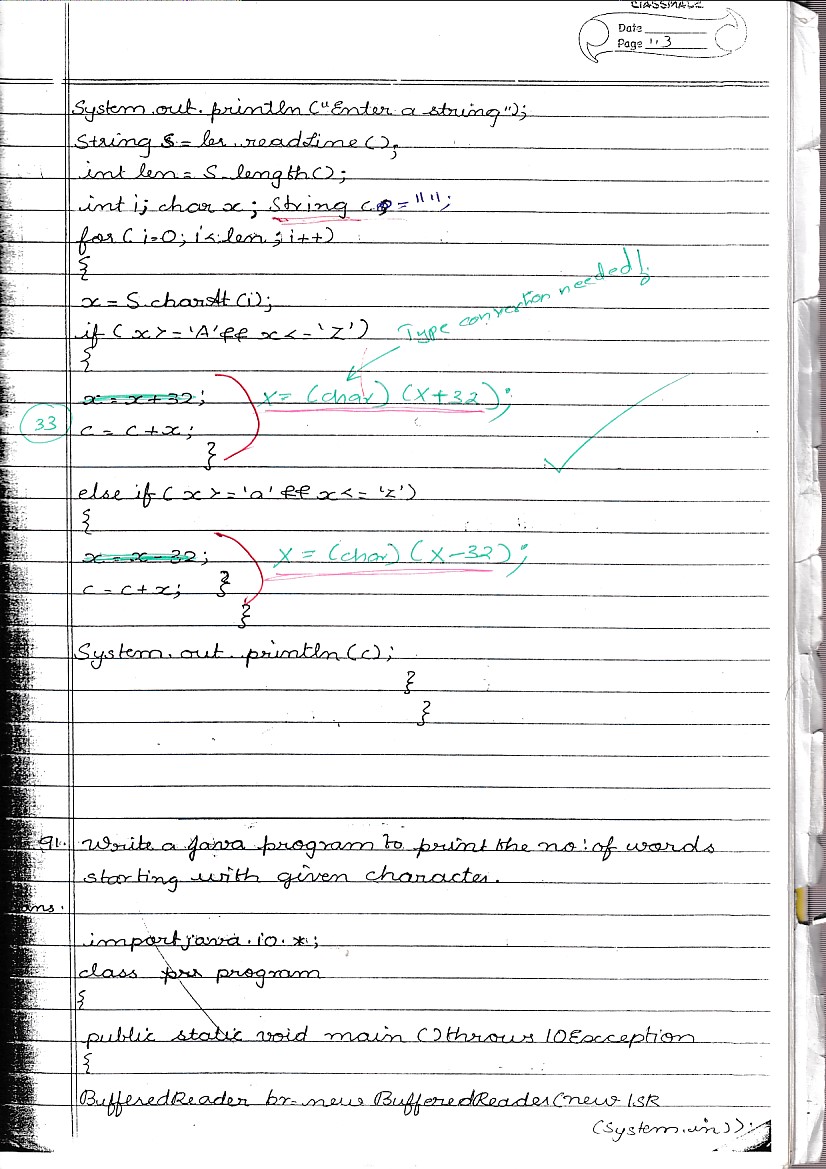 CLASSMATE
Date
Page 113
System.out.println("Enter a string");
String S = br.readLine();
int len = S.length();
int i; char x; String c = "";
for (i=0; i<len; i++)
{
x = S.charAt(i);
if (x >= 'A' && x <= 'Z')
Type convertion needed!
{
x = x+32; x = (char) (x+32);
33
c = c+x;
}
else if (x >= 'a' && x <= 'z')
{
x = x-32; x = (char) (x-32);
c = c+x; }
}
System.out.println(c);
}
}
91. Write a Java program to print the no: of words
starting with given character.
ans.
import java.io.*;
class program
{
public static void main () throws IOException
{
BufferedReader br = new BufferedReader(new ISR
(System.in));